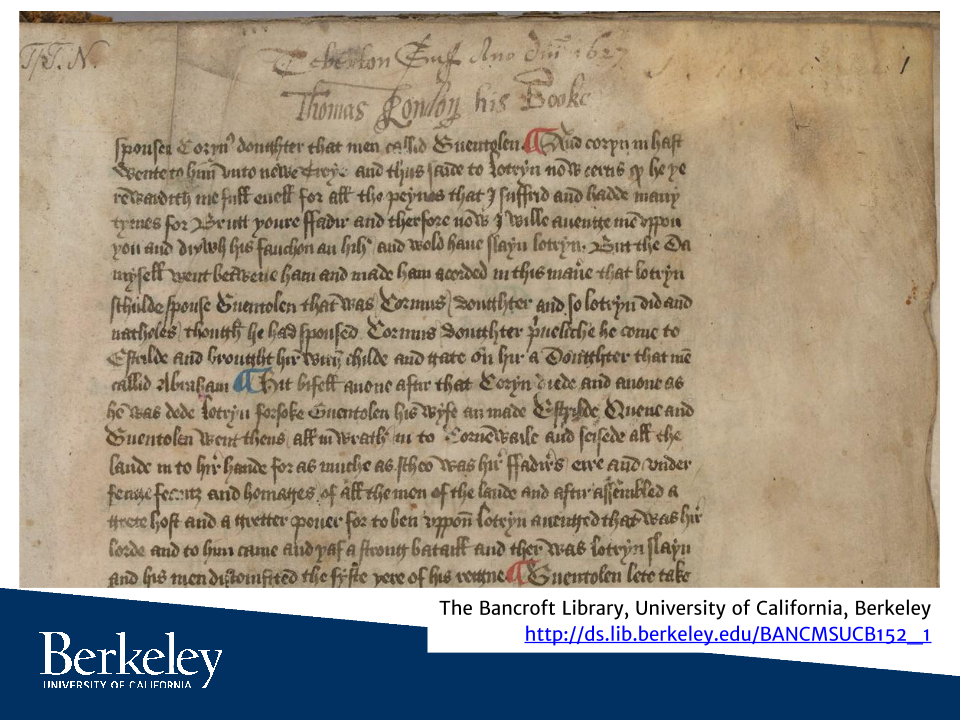 T. N.
Suff Ano Dni 1627
1
Thomas his Booke
spousen Coryn' doughter that men callid Guentolen ¶ And coryn in hast
wente to him vnto newe Troye and thus saide to lotryn now certis he ye
rewardith me full euell for all the peynes that I suffrid and hadde many
tymes for Brutt youre ffadir and therfore now I wille auenge me vppon
you and his fauchon an hih and wold haue slayn lotryn. But the Da
mysell went betwene ham and made ham acorded in this man'e that lotryn
schulde spouse Guentolen that was Corinus doughter and so lotryn did and
natholes though he had spoused Corinus doughter he come to
Estrilde and brought hir with childe and gate on hir a doughter that me
callid Abraham ¶ Hit bifell anone aftir that Coryn diede and anone as
he was dede lotryn forsoke Guentolen his wyfe an made Estrilde Quene and
Guentolen went thens all in wrath in to Cornewaile and seisede all the
lande in to hir hande for as muche as scheo was hir ffadirs eire and vnder
fenge and homages of all the men of the lande and aftir assembled a
grete host and a gretter power for to ben vppon lotryn auenged that was hir
lorde and to him came and yaf a strong bataill and ther was lotryn slayn
and his men discomfited the fyfte yere of his regne ¶ Guentolen lete take
The Bancroft Library, University of California, Berkeley
http://ds.lib.berkeley.edu/BANCMSUCB152_1
Berkeley
UNIVERSITY OF CALIFORNIA